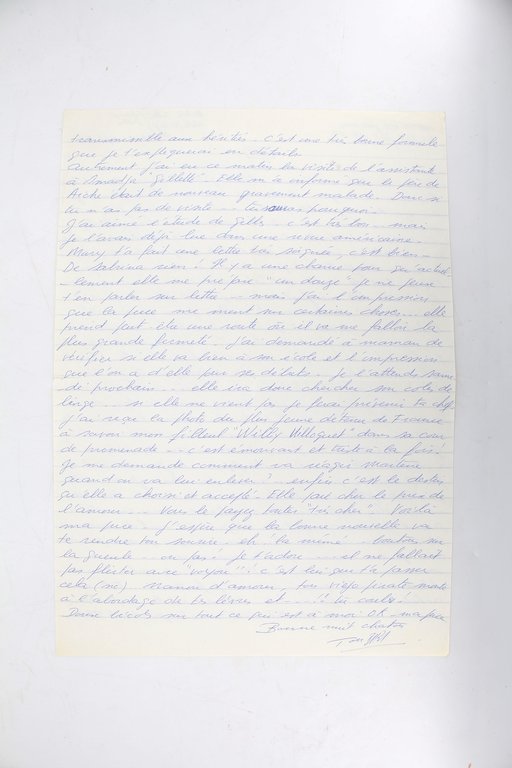 transmissible aux héritiers - c'est une très bonne formule
que je t'expliquerai en détails
Autrement j'ai eu ce matin la visite de l'assistante
a informé que le père de
était de nouveau gravement malade. Donc si
tu n'as pas de visite - tu sauras pourquoi.
J'ai aimé l'étude de - c'est très bon - mais
je l'avais déjà lue dans une revue américaine.
t'a fait une lettre très soignée, c'est bien -
De Sabrina rien ! Il y a une chance pour qu'actuel
-lement elle me prépare "un douzé" je ne peux
t'en parler sur lettre - mais j'ai l'impression
que la puce me ment sur certaines choses - elle
prend peut être une route où il va me falloir la
plus grande fermeté - J'ai demandé à maman de
vérifier si elle va bien à son école et l'impression
que l'on a d'elle pour ses débuts. Je l'attends same
-di prochain - elle ira donc chercher son colis de
linge - si elle ne vient pas je ferai prévenir
j'ai reçu la photo du plus jeune détenu de France
à savoir mon filleul "Willy Hilloquet" dans sa cour
de promenade - c'est émouvant et triste à la fois.
Je me demande comment va réagir Martine
quand on va leur enlever ? enfin c'est le destin
qu'elle a choisi et accepté - Elle paie cher le prix de
l'amour - Vous le payez toutes "très cher" - Voilà
ma puce - J'espère que la bonne nouvelle va
te rendre ton sourire - eh ! la mémé - bouton sur
la gueule - ou pas ! je t'adore - il ne fallait
pas flirter avec "voyou" : c'est lui qui t'a passé
cela (sic). Maman d'amour - ton vieux pirate monte
à l'abordage de tes lèvres et - !
Donne sur tout ce qui est à moi OK - ma puce
Bonne nuit